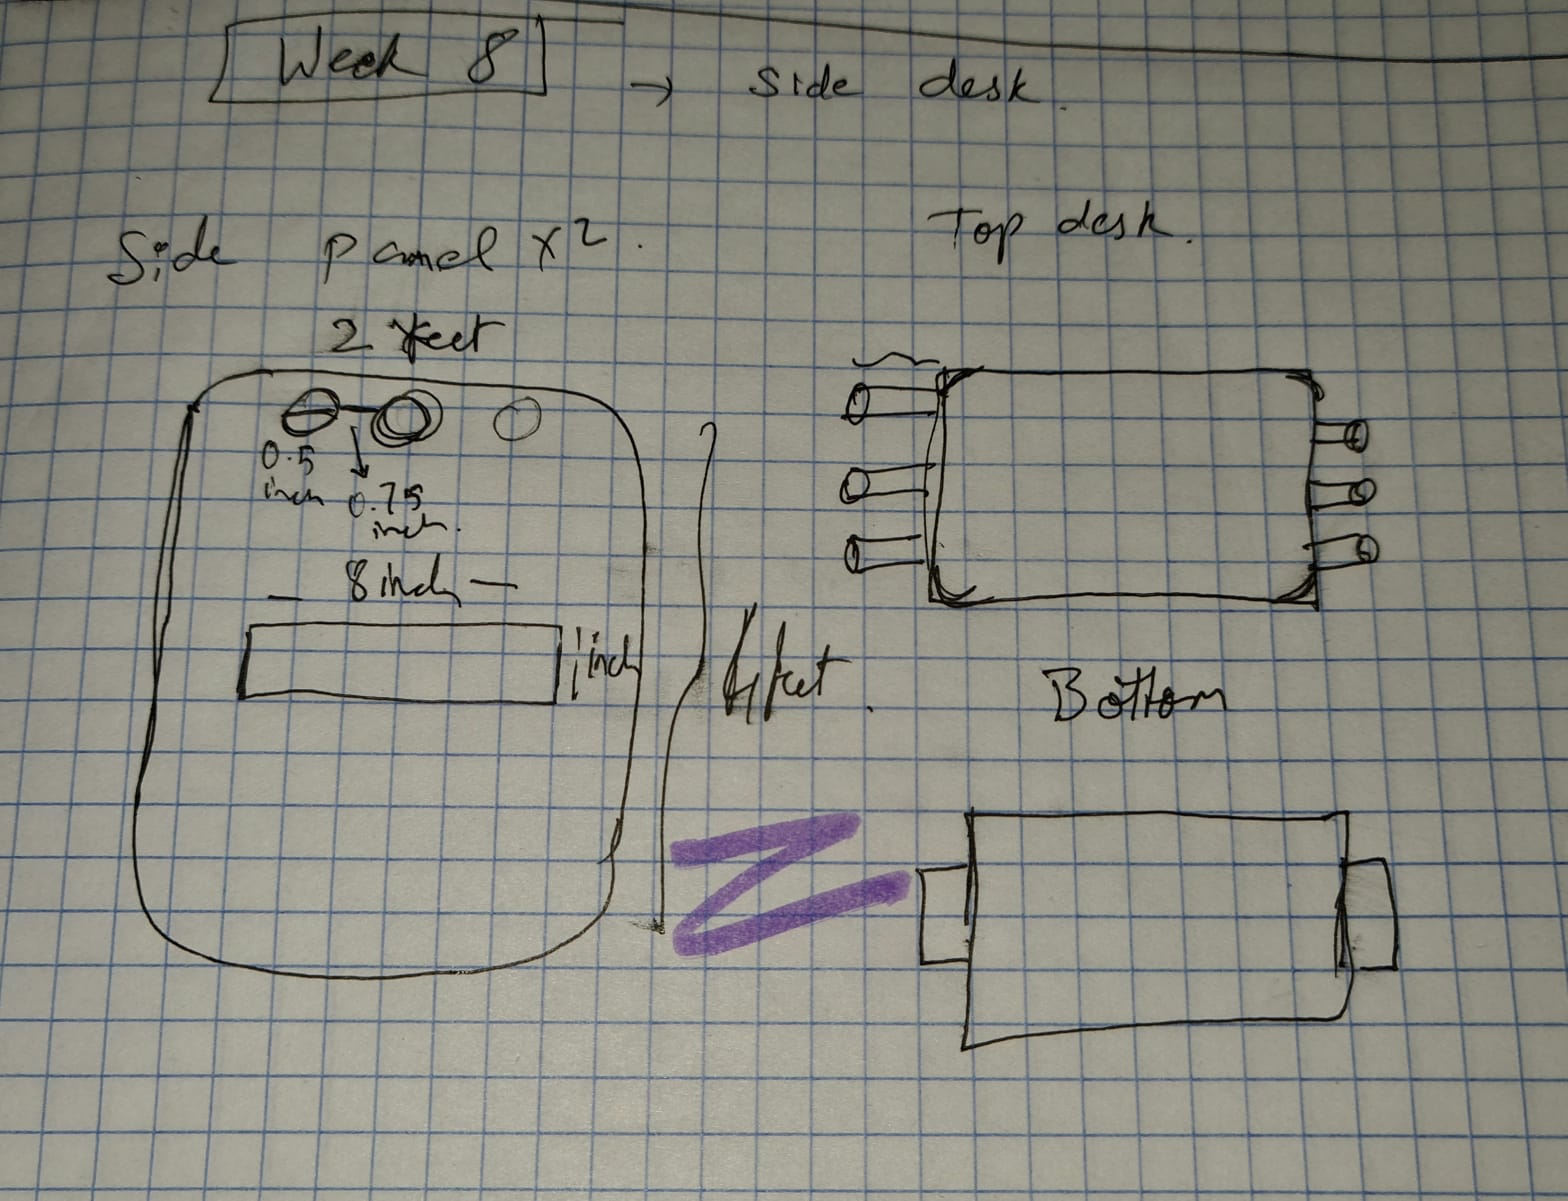 Week 8 → side desk.
Side panel x2.
2 feet
0.5
inch
0.75
inch.
— 8 inch —
1 inch
4 feet.
Top desk.
Bottom